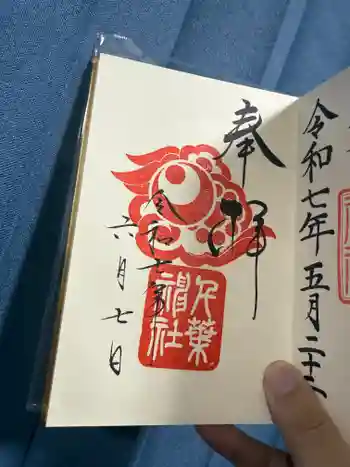 令和七年五月二十
奉拝
葉
社
令和七年
六月七日